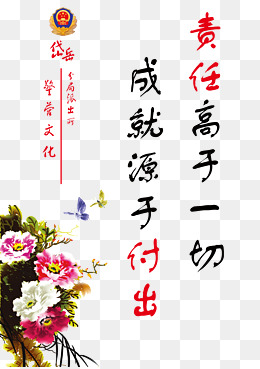 责任高于一切
成就源于付出
岱岳
分局派出所
警营文化